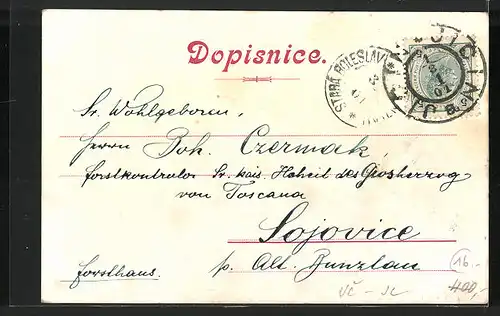 Dopisnice.
STARÁ BOLESLAV
JIČÍN
Sr. Wohlgeboren,
Herrn Joh. Czermak
Forstkontrolor Sr. kais. Hoheit des Grosherzog
von Toscana
Sojovice
Forsthaus. p. Alt. Bunzlau
16.-
400,-
VČ - JC